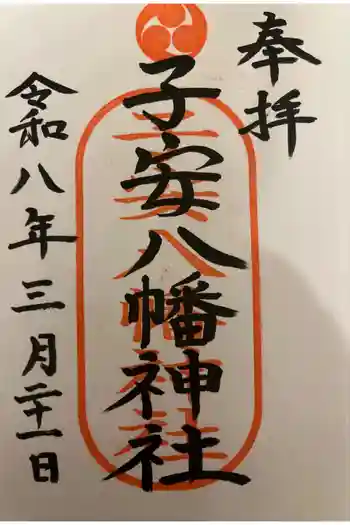 奉拝
子安八幡神社
令和八年三月二十一日